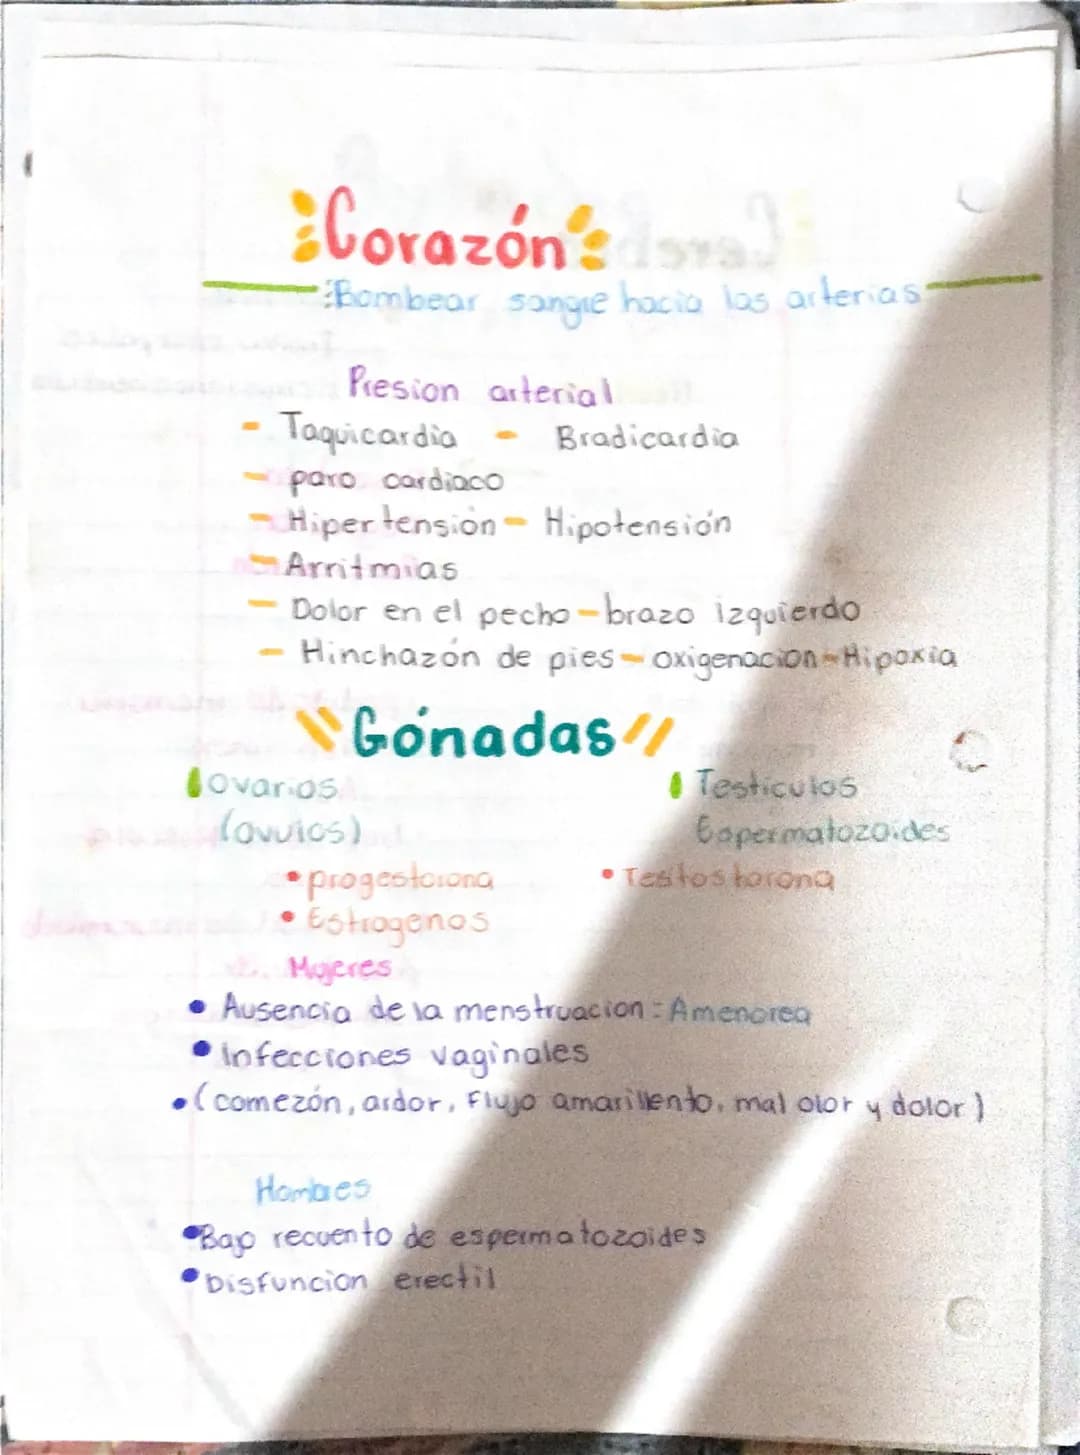 Corazón
Bombear sangre hacia las arterias
Presion arterial
- Taquicardia - Bradicardia
- paro cardiaco
- Hipertensión - Hipotensión
- Arritmias
- Dolor en el pecho - brazo izquierdo
- Hinchazón de pies - oxigenacion - Hipoxia
Gónadas
Ovarios
(ovulos)
Testiculos
Espermatozoides
• progestorona
• Estrogenos
• Testostorona
Mujeres
• Ausencia de la menstruacion: Amenorea
• Infecciones vaginales
• (comezón, ardor, Flujo amarillento, mal olor y dolor)
Hombres
• Bajo recuento de espermatozoides
• Disfuncion erectil